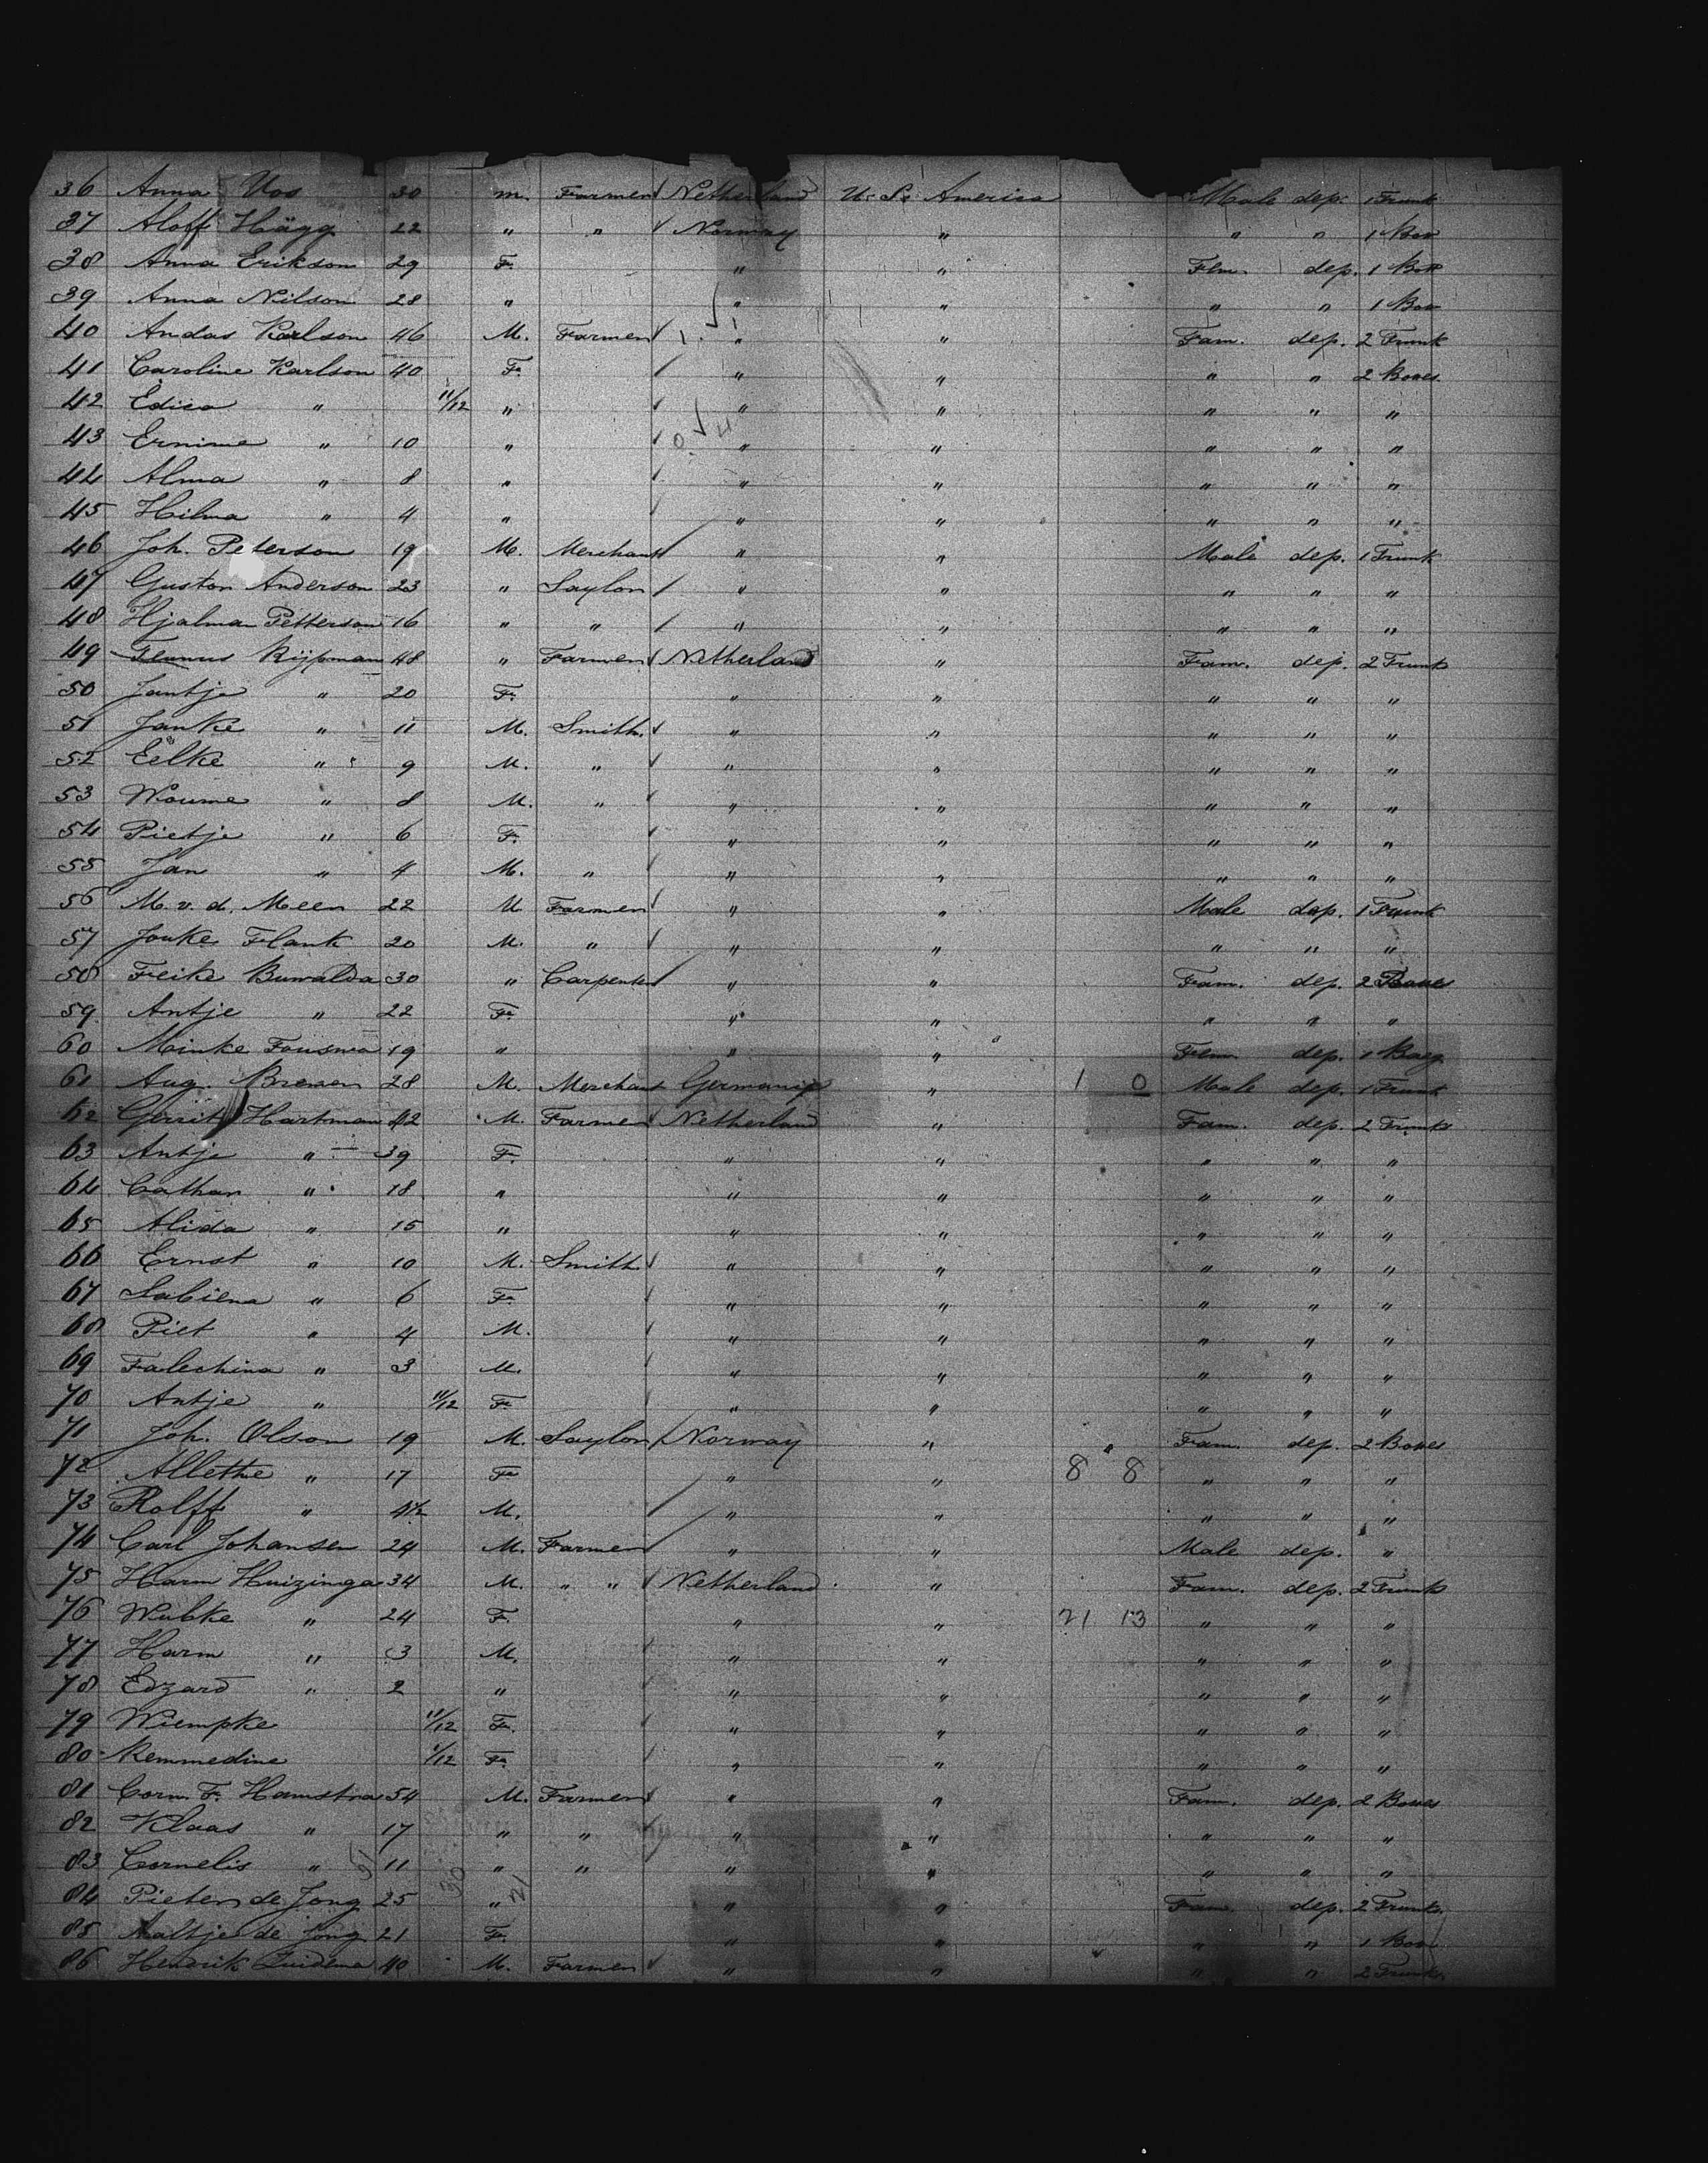 36 Anna Vos 30 m. Farmer Netherland U. S. America Male dep. 1 Trunk
37 Aloff Hägg 22 " " Norway " " " 1 Box
38 Anna Erikson 29 F. " " Fem. dep. 1 Box
39 Anna Nilson 28 " " " " " 1 Box
40 Andas Karlson 46 M. Farmer " " Fam. dep. 2 Trunk
41 Caroline Karlson 40 F. " " " " 2 Boxes
42 Edica " 11/12 " " " " " "
43 Ernime " 10 " " " " " "
44 Alma " 8 " " " " " "
45 Hilma " 4 " " " " " "
46 Joh. Peterson 19 M. Merchant " " Male dep. 1 Trunk
47 Guston Anderson 23 " Saylor " " " " "
48 Hjalmar Petterson 16 " " " " " " "
49 Rijpman 48 " Farmer Netherland " Fam. dep. 2 Trunk
50 Jantje " 20 F. " " " " "
51 Janke " 11 M. Smith. " " " " "
52 Eelke " 9 M. " " " " " "
53 Woume " 8 M. " " " " " "
54 Pietje " 6 F. " " " " "
55 Jan " 4 M. " " " " " "
56 M. v. d. Meer 22 M Farmer " " Male dep. 1 Trunk
57 Jouke Flank 20 M. " " " " " "
58 Feike Buwalda 30 " Carpenter " " Fam. dep. 2 Boxes
59 Antje " 22 F. " " " " "
60 Minke Fousma 19 " " " Fem. dep. 1 Bag
61 Aug. Bremen 28 M. Merchant Germany " 1 0 Male dep. 1 Trunk
62 Gerrit Hartman 42 M. Farmer Netherland " Fam. dep. 2 Trunks
63 Antje " 39 F. " " " " "
64 Cathar " 18 " " " " " "
65 Alida " 15 " " " " " "
66 Ernst " 10 M. Smith " " " " "
67 Sabiena " 6 F. " " " " "
68 Piet " 4 M. " " " " "
69 Falechina " 3 M. " " " " "
70 Antje " 11/12 F. " " " " "
71 Joh. Olson 19 M. Saylor Norway " Fam. dep. 2 Boxes
72 Allethe " 17 F. " " 8 8 " " "
73 Rolff " 4 1/2 M. " " " " "
74 Carl Johansen 24 M. Farmer " " Male dep. "
75 Harm Huizinga 34 M. " " Netherland " Fam. dep. 2 Trunks
76 Wubke " 24 F. " " 21 13 " " "
77 Harm " 3 M. " " " " "
78 Edzard " 2 " " " " " "
79 Wiempke 11/12 F. " " " " "
80 Remmedine 1/12 F. " " " " "
81 Corn. F. Hamstra 54 M. Farmer " " Fam. dep. 2 Boxes
82 Klaas " 17 " " " " " " "
83 Cornelis " 11 " " " " " " "
84 Pieter de Jong 25 " " " Fam. dep. 2 Trunks.
85 Aaltje de Jong 21 F. " " " " 1 Box
86 Hendrik Zuidema 40 M. Farmer " " " " 2 Trunks